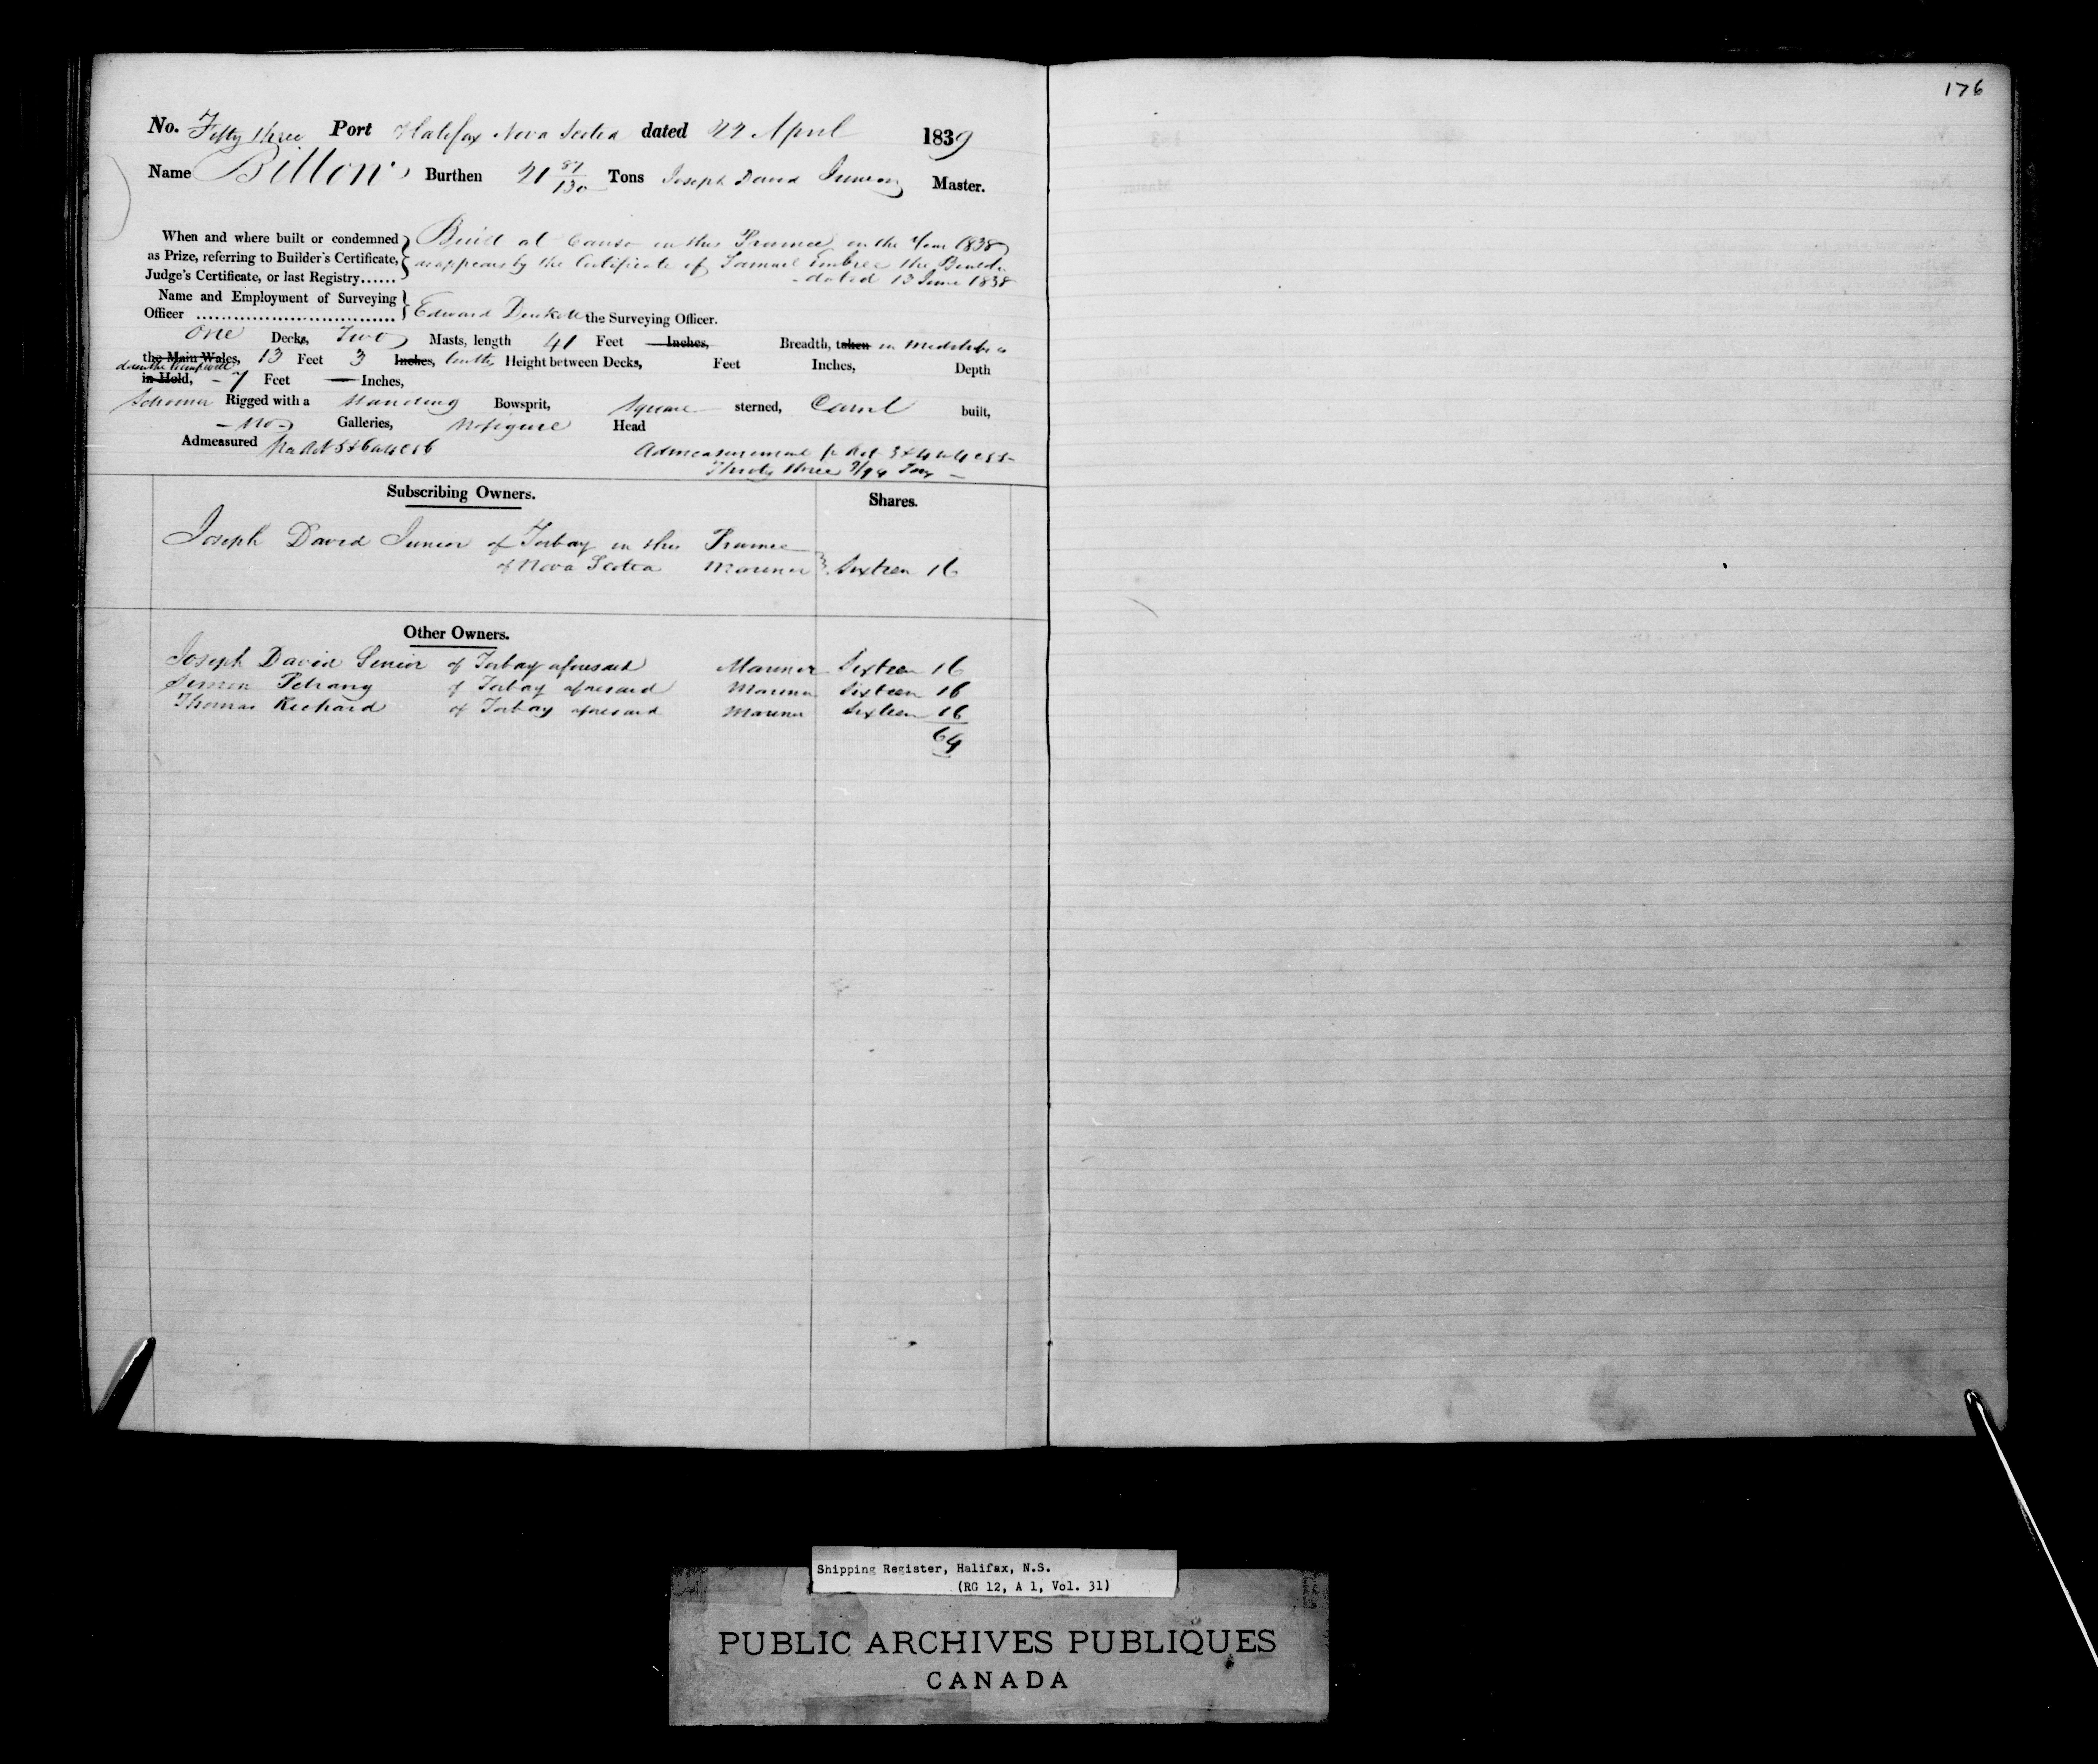 176
No. Fifty three Port Halifax Nova Scotia dated 22 April 1839
Name Billow Burthen 21 87/130 Tons Joseph David Junior Master.
When and where built or condemned as Prize, referring to Builder's Certificate, Judge's Certificate, or last Registry......
Built at Canso in this Province in the Year 1838
as appears by the Certificate of Samuel Embree the Builder
dated 13 June 1838
Name and Employment of Surveying
Officer .................................. Edward Duckett the Surveying Officer.
One Decks, Two Masts, length 41 Feet — Inches, Breadth, taken in Midships
the Main Wales, 13 Feet 3 Inches, tenths, Height between Decks, Feet Inches, Depth
in Hold, - 7 Feet — Inches,
Schooner Rigged with a standing Bowsprit, Square sterned, Carvel built,
- no - Galleries, No figure Head
Admeasured
Admeasurement
Thirty three Tons
Subscribing Owners. Shares.
Joseph David Junior of Torbay in this Province
of Nova Scotia Mariner Sixteen 16
Other Owners.
Joseph David Senior of Torbay aforesaid Mariner Sixteen 16
Simon Petrang of Torbay aforesaid Mariner Sixteen 16
Thomas Richard of Torbay aforesaid Mariner Sixteen 16
64
Shipping Register, Halifax, N.S.
(RG 12, A 1, Vol. 31)
PUBLIC ARCHIVES PUBLIQUES
CANADA